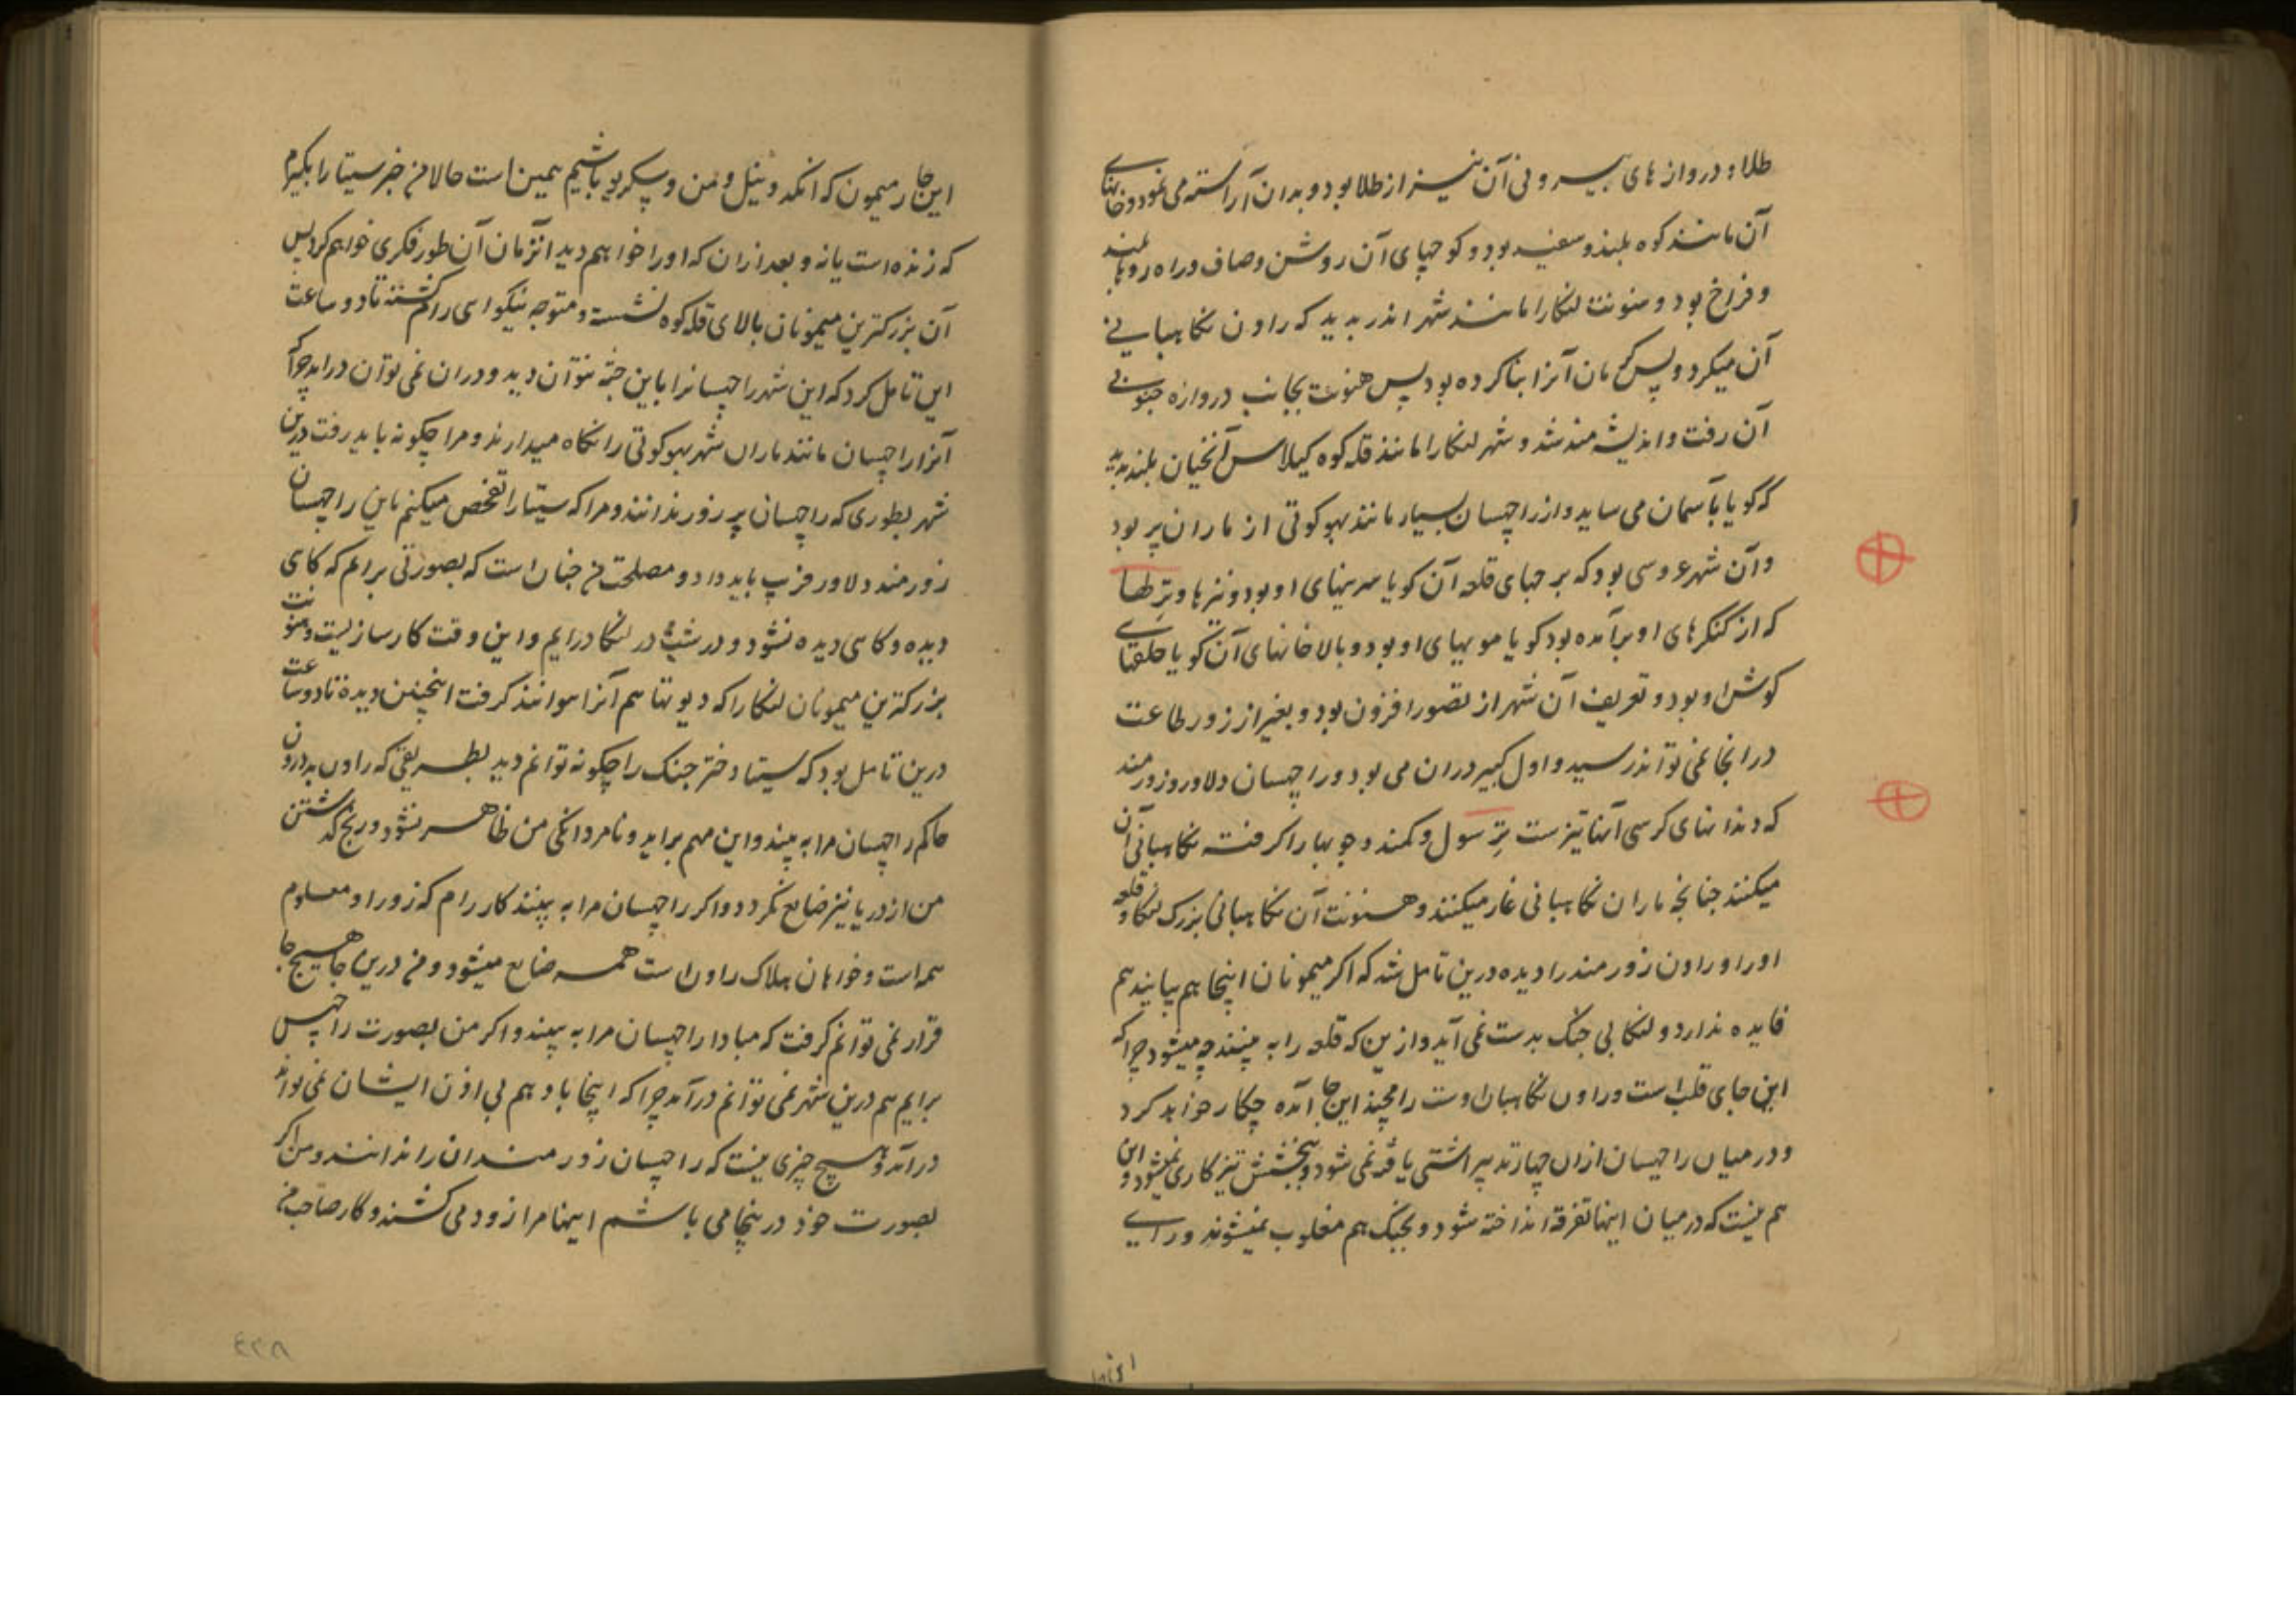 طلا و دروازهای بیرونی آن نیز از طلا بود و بدان آراسته می نمود و خانهای
آن مانند کوه بلند و سفید بود و کوچهای آن روشن و صاف و راه رو با بلند
و فراخ بود و هنونت لنکا را مانند شهر اندر بدید که راون نکاهبانی
آن میکرد و بسکرمان آنرا بنا کرده بود پس هنونت بجانب دروازه جنوبی
آن رفت و اندیشه مند شد و شهر لنکا را مانند قله کوه کیلاس آنچنان بلند بدید
که کویا بآسمان می ساید و از راچهسان بسیار مانند بهوکوتی از ماران پر بود
و آن شهر عروسی بود که برجهای قلعه آن کویا سرینهای او بود و نیزها و ترسولها
که از کنکرهای او برآمده بود کویا مویهای او بود و بالاخانهای آن کویا حلقهای
کوش او بود و تعریف آن شهر از تصور افزون بود و بغیر از زور طاعت
درانجا نمی تواند رسید و اول کبیر دران می بود و راچهسان دلاور و زورمند
که دندانهای کرسی آنها تیزست ترسول و کمند و چوبها را کرفته نکاهبانی آن
میکنند چنانچه ماران نکاهبانی غار میکنند و هنونت آن نکاهبانی بزرک لنکا و قلعه
او را و راون زورمند را دیده درین تامل شد که اکر میمونان اینجا هم بیایند هم
فایده ندارد و لنکا بی جنک بدست نمی آید و ازین که قلعه را به بینند چه میشود چرا که
این جای قلب است و راون نکاهبان اوست رامچند این جا آمده چکار خواهد کرد
و در میان راچهسان ازان چهار تدبیر آشتی یافته نمی شود و بخشش نیز کاری نمیشود و این
هم نیست که در میان اینها تفرقه انداخته شود و بجنک هم مغلوب نمیشوند و رای
این جا
این جا چار میمون که انکد و نیل و من و سکریو باشیم همین است حالا من خبر سیتا را بکیرم
که زنده است یا نه و بعد ازان که او را خواهم دید آنزمان آن طور فکری خواهم کرد پس
آن بزرکترین میمونان بالای قله کوه نشست و متوجه نیکواسی رام کشته تا دو ساعت
این تامل کرد که این شهر راچهسانرا باین جثه نتوان دید و دران نمی توان درامد چرا که
آنرا راچهسان مانند ماران شهر بهوکوتی را نکاه میدارند و مرا چکونه باید رفت درین
شهر بطوری که راچهسان پر زور ندانند و مرا که سیتا را تفحص میکنم باین راچهسان
زورمند دلاور فریب باید داد و مصلحت من چنان است که بصورتی برایم که کاهی
دیده و کاهی دیده نشود و در شب در لنکا درایم و این وقت کارسازیست و هنونت
بزرکترین میمونان لنکا را که دیوتها هم آنرا نتوانند کرفت اینچنین دیده تا دو ساعت
درین تامل بود که سیتا دختر جنک را چکونه توانم دید بطریقی که راون بدرون
حاکم راچهسان مرا نه بیند و این مهم براید و نامردانکی من ظاهر نشود و رنج کذشتن
من از دریا نیز ضایع نکردد و اکر راچهسان مرا به بینند کار رام که زور او معلوم
همه است و خواهان هلاک راون است همه ضایع میشود و من درین جا هیچ جا
قرار نمی توانم کرفت که مبادا راچهسان مرا به بینند و اکر من بصورت راچهس
برایم هم درین شهر نمی توانم درآمد چرا که اینجا باد هم بی اذن ایشان نمی تواند
درآمد و هیچ چیزی نیست که راچهسان زورمند ان را ندانند و من اکر
بصورت خود درینجا می باشم اینها مرا زود می کشند و کار صاحب من
٤٢٨